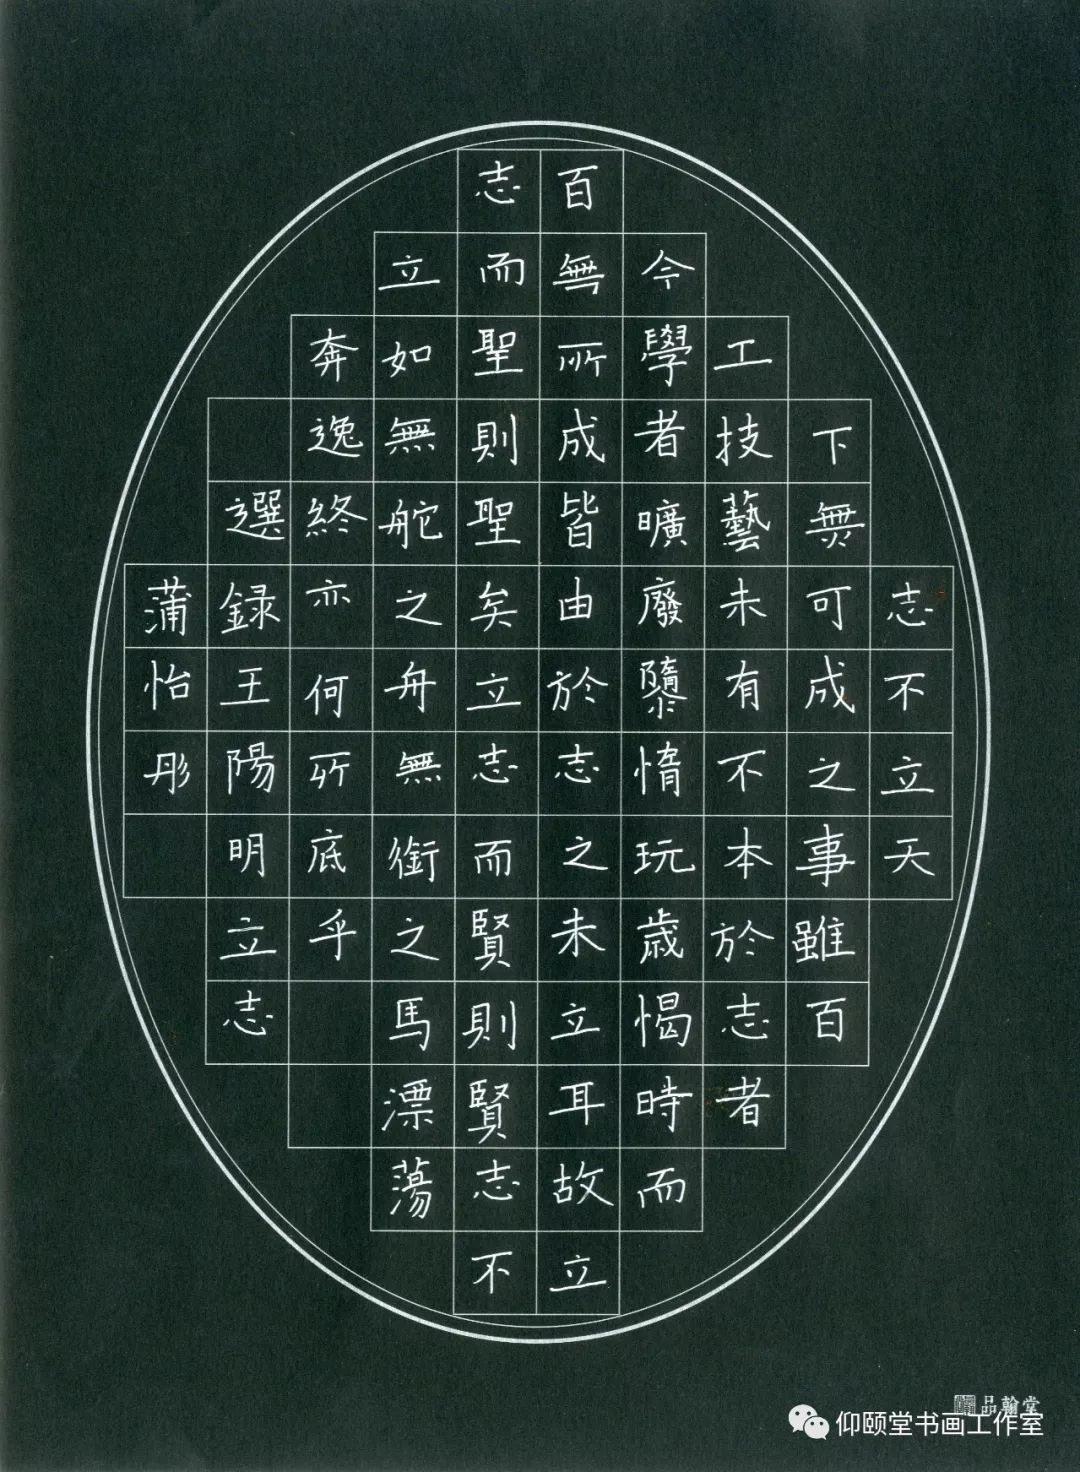 志不立天
下無可成之事雖百
工技藝未有不本於志者
今學者曠廢隳惰玩歲愒時而
百無所成皆由於志之未立耳故立
志而聖則聖矣立志而賢則賢志不
立如無舵之舟無銜之馬漂蕩
奔逸終亦何所底乎
選録王陽明立志
蒲怡彤
品翰堂
仰颐堂书画工作室